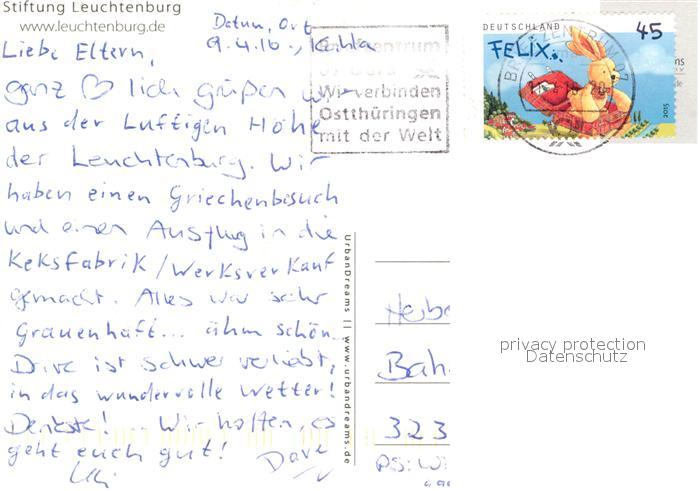 Stiftung Leuchtenburg
www.leuchtenburg.de
Datum, Ort
9.4.16., Kahla
Liebe Eltern,
ganz ♡lich grüßen wir
aus der Luftigen Höhe
der Leuchtenburg. Wir
haben einen Griechenbesuch
und einen Ausflug in die
Keksfabrik/Werksverkauf
gemacht. Alles war sehr
Grauenhaft... ähm schön.
Dave ist schwer verliebt,
in das wundervolle Wetter!
Denkste!... Wir hoffen, es
geht euch gut! Dave
zentrum
Wir verbinden
Ostthüringen
mit der Welt
DEUTSCHLAND 45
FELIX
2015
UrbanDreams || www.urbandreams.de
Bah
323
PS: Wi
privacy protection
Datenschutz